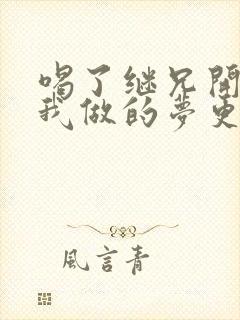 喝了继兄開
我做的夢更
風言青